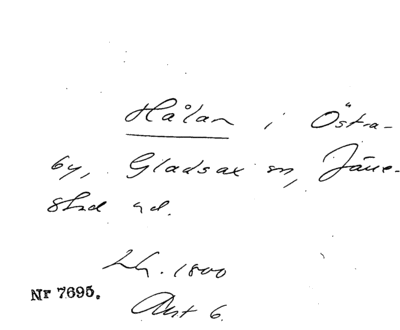 Hålan i Östra-
by, Gladsax sn, Järre-
stad hd.
LH. 1800
Akt 6.
Nr 7695.